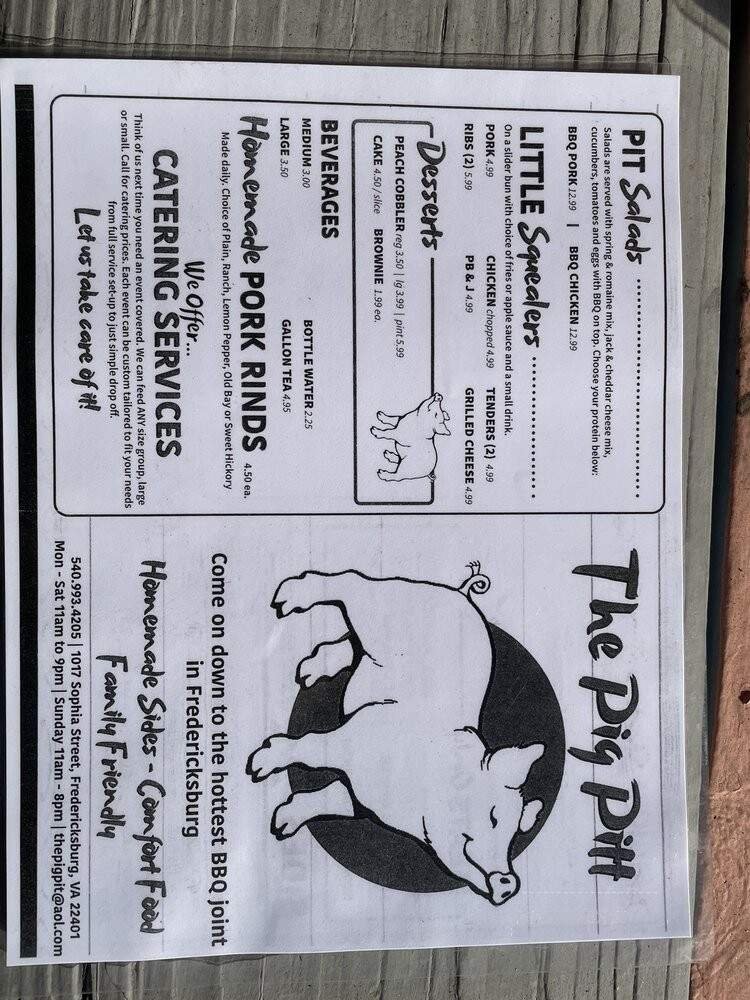 PIT Salads
Salads are served with spring & romaine mix, jack & cheddar cheese mix,
cucumbers, tomatoes and eggs with BBQ on top. Choose your protein below:
BBQ PORK 12.99 | BBQ CHICKEN 12.99
LITTLE Squealers
On a slider bun with choice of fries or apple sauce and a small drink.
PORK 4.99 CHICKEN chopped 4.99 TENDERS (2) 4.99
RIBS (2) 5.99 PB & J 4.99 GRILLED CHEESE 4.99
Desserts
PEACH COBBLER reg 3.50 | lg 3.99 | pint 5.99
CAKE 4.50 / slice BROWNIE 1.99 ea.
BEVERAGES
MEDIUM 3.00 BOTTLE WATER 2.25
LARGE 3.50 GALLON TEA 4.95
Homemade PORK RINDS 4.50 ea.
Made daily. Choice of Plain, Ranch, Lemon Pepper, Old Bay or Sweet Hickory
We Offer...
CATERING SERVICES
Think of us next time you need an event covered. We can feed ANY size group, large
or small. Call for catering prices. Each event can be custom tailored to fit your needs
from full service set-up to just simple drop off.
Let us take care of it!
The Pig Pitt
Come on down to the hottest BBQ joint
in Fredericksburg
Homemade Sides - Comfort Food
Family Friendly
540.993.4205 | 1017 Sophia Street, Fredericksburg, VA 22401
Mon - Sat 11am to 9pm | Sunday 11am - 8pm | thepigpit@aol.com